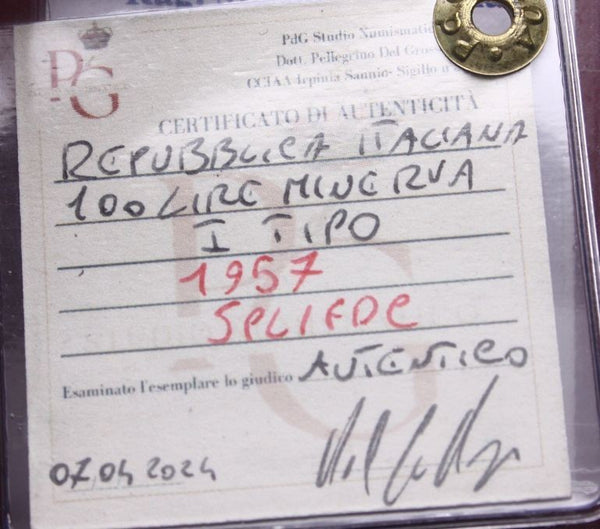 PG
PdG Studio Numismatic
Dott. Pellegrino Del Gross
CCIAA Irpinia Sannio- Sigillo n
CERTIFICATO DI AUTENTICITÀ
REPUBBLICA ITALIANA
100 LIRE MINERVA
I TIPO
1957
SPLIFDC
Esaminato l'esemplare lo giudico AUTENTICO
07.04 2024